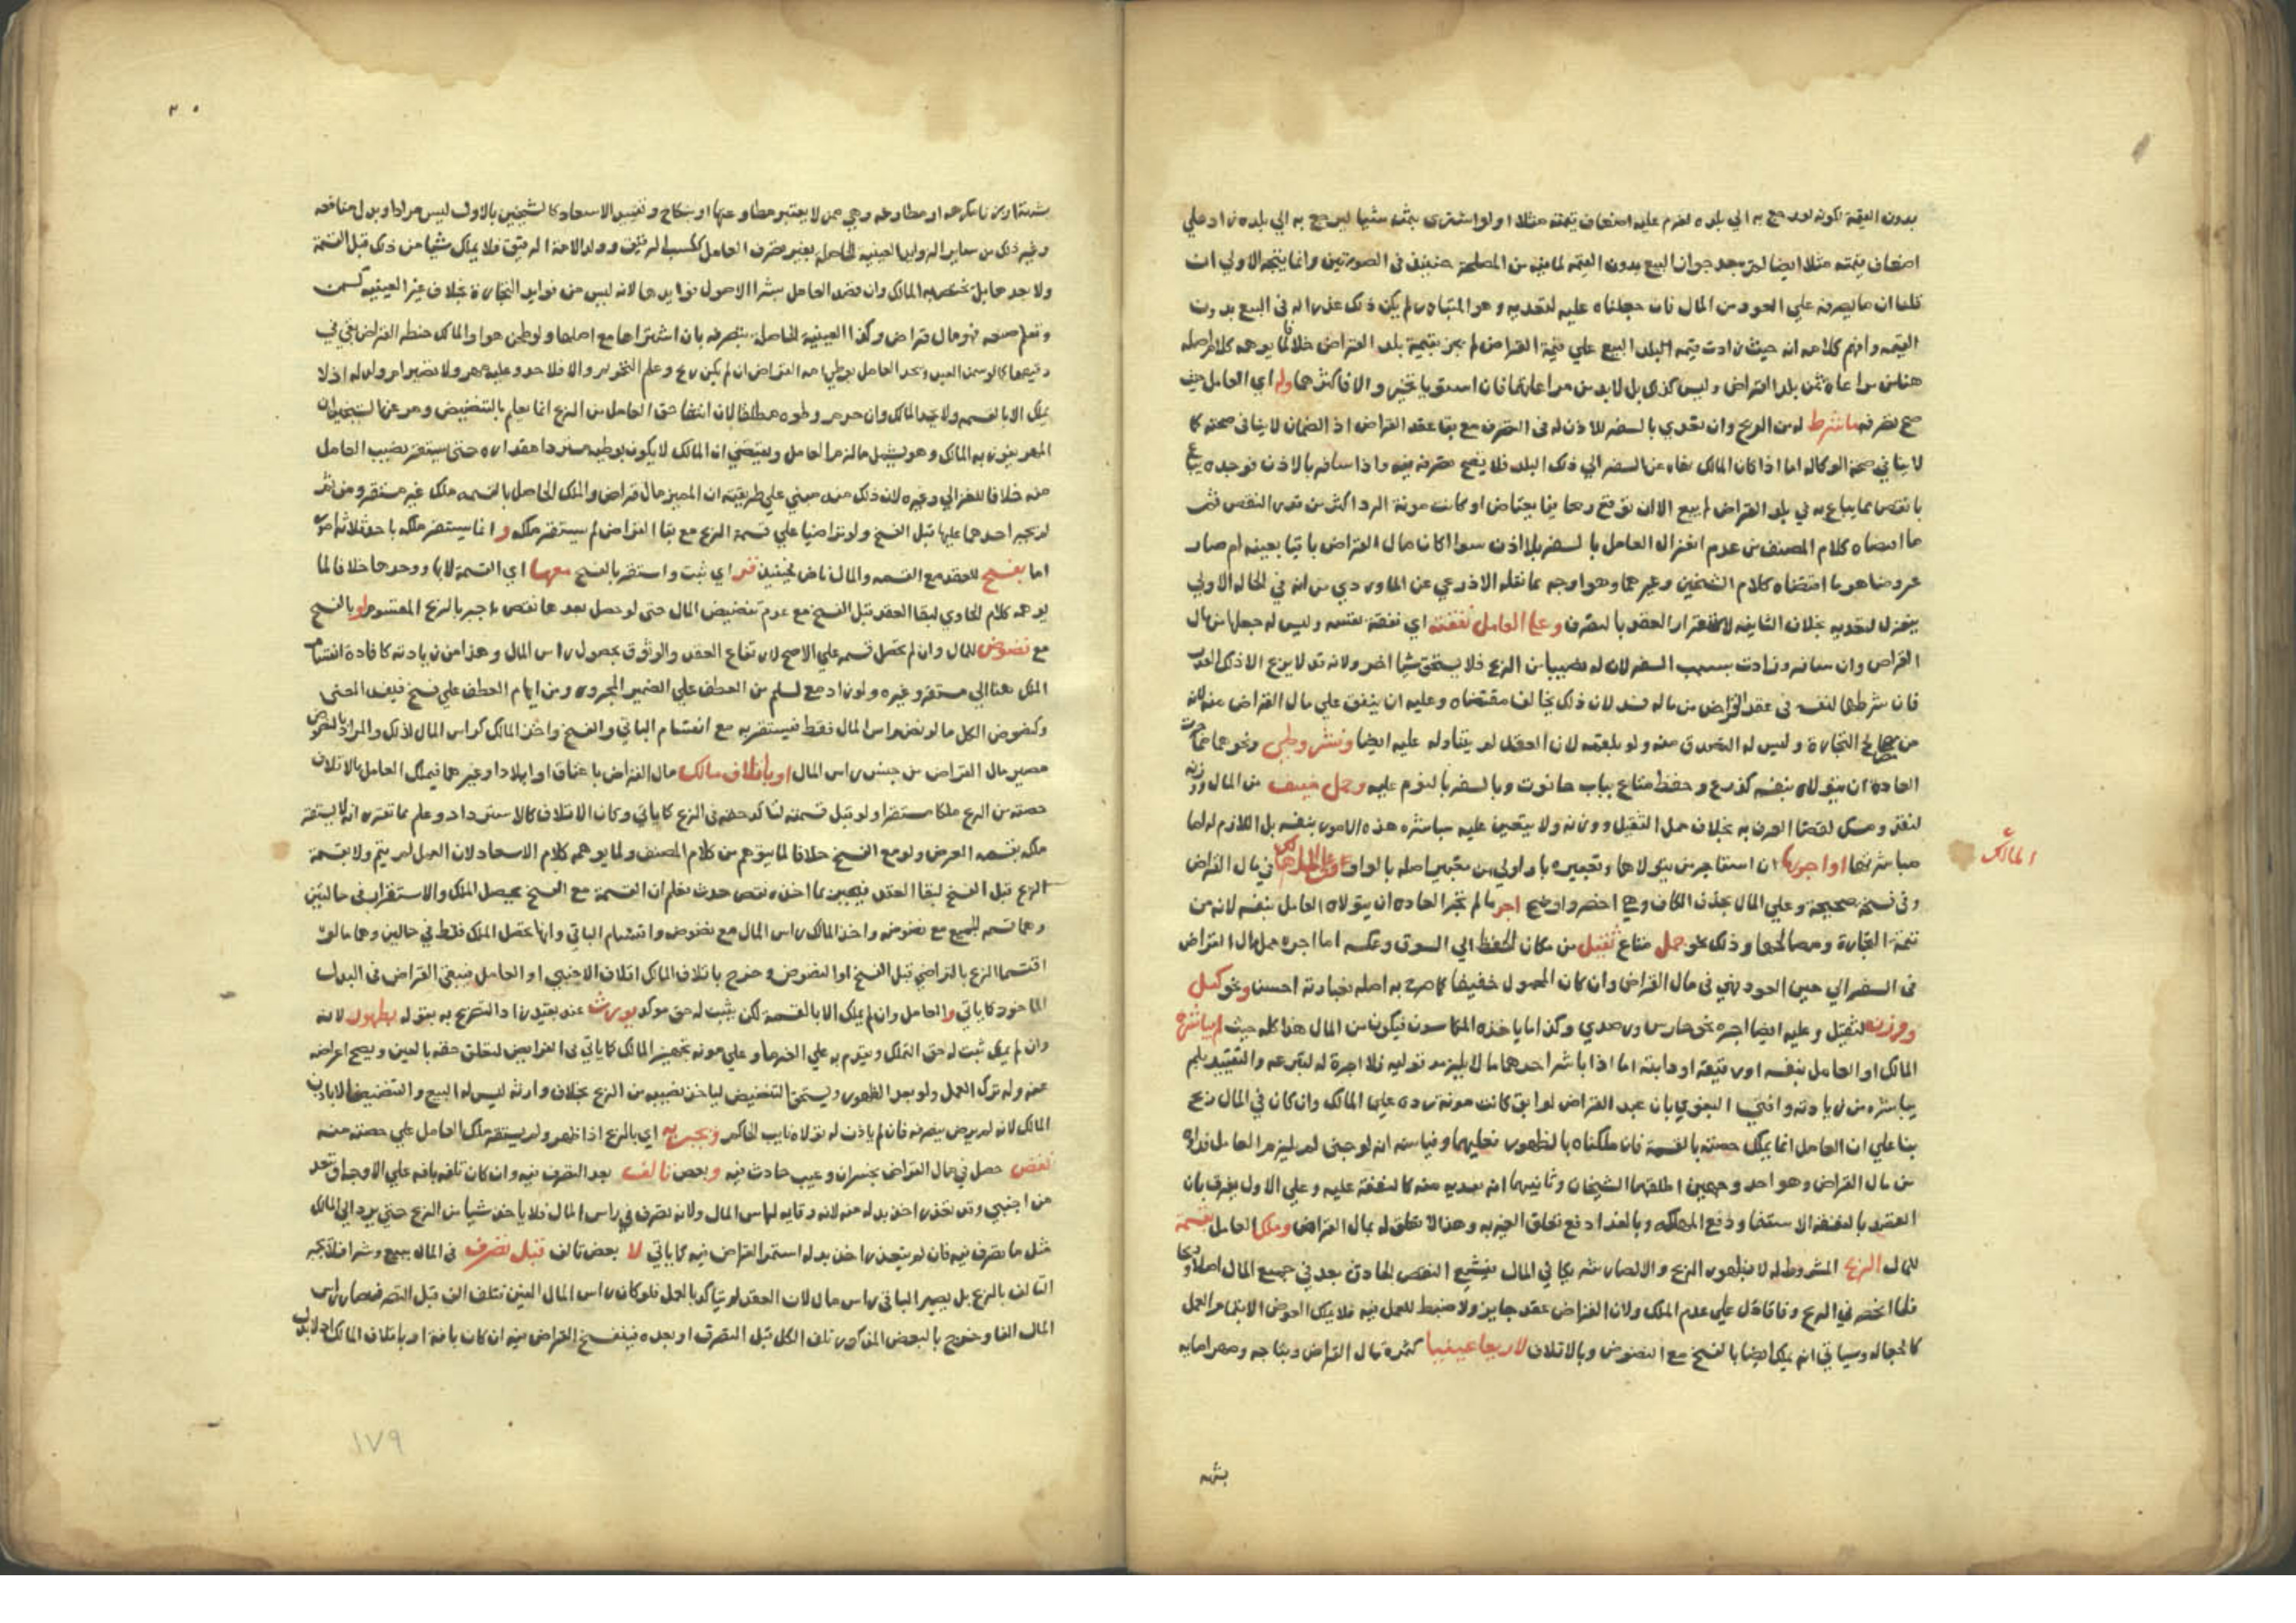 بدون القيمة لكونه لو رجع به الي بلده لغرم عليه اضعاف قيمته مثلا اولو اشترى بثمنه شيا ليرجع به الي بلده زاد علي
اضعاف قيمته مثلا ايضا لم يبعد جواز البيع بدون القيمة لما فيه من المصلحة حينئذ في الصورتين وانما يتجه الاولي ان
قلنا ان ما يصرفه علي العود من المال فان جعلناه عليه لتعديه وهو المتبادر لم يكن ذلك عذرا له في البيع بدون
القيمه وافهم كلامه انه حيث زادت قيمه البلد البيع علي قيمة القراض لم يجز بقيمة بلد القراض خلافا لما يوهمه كلام
هنا من مراعاة ثمن بلد القراض وليس كذلك بل لابد من مراعاتهما فان استويا تخير والا فاكثرهما وله اي العامل حيث
صح تصرفه ما شرط له من الربح وان تعدي بالسفر للاذن له في التصرف مع بقا عقد القراض اذ الضمان لا ينافي صحته كما
لا ينافي صحة الوكاله اما اذا كان المالك نهاه عن السفر الي ذلك البلد فلا يصح تصرفه فيه واذا سافر بالاذن فوجده يباع
بانقص مما يباع به في بلد القراض لم يبع الا ان توقع ربحا فيما يعتاض او كانت مونة الرد اكثر من قدر النقص ثم
ما اقتضاه كلام المصنف من عدم انعزال العامل بالسفر بلا اذن سوا كان مال القراض باقيا بعينه ام صار
عروضا هو ما اقتضاه كلام الشيخين وغيرهما وهو اوجه مما نقله الاذرعي عن الماوردي من انه في الحالة الاولي
ينعزل لتعديه بخلاف الثانيه لاستقرار العقد بالتصرف وعلي العامل نفقته اي نفقة نفسه وليس له جعلها من مال
القراض وان سافر وزادت بسبب السفر لان له نصيبا من الربح فلا يستحق شيا اخر ولانه قد لا يربح الا ذلك القدر
فان شرطها لنفسه في عقد القراض من ماله فسد لان ذلك يخالف مقتضاه وعليه ان ينفق علي مال القراض منه لانه
من مصالح التجارة وليس له التصدق منه ولو بلقمه لان العقد لم يتناوله وعليه ايضا ونشر وطي ونحوهما مما جرت
العادة ان يتولاه بنفسه كذرع وحفظ متاع بباب حانوت وبالسفر بالنوم عليه وحمل خفيف من المال ووزنه
لنقد ومسك لقضا العرف به بخلاف حمل الثقيل ووزنه ولا يتعين عليه مباشره هذه الامور بنفسه بل اللازم له اما
مباشرتها او اجرها ان استاجر من يتولاها وتعبيره باو اولي من تعبير اصله بالواو وعلي المالك في مال القراض
المالك
وفي نسخة صحيحة وعلي المال بحذف الكاف وهي اخصر واوضح اجر ما لم تجر العاده ان يتولاه العامل بنفسه لانه من
تتمة التجارة ومصالحها وذلك نحو حمل متاع ثقيل من مكان الحفظ الي السوق وعكسه اما اجره حمل مال القراض
في السفر الي حين العود فهي في مال القراض وان كان المحمول خفيفا كما صرح به اصله فعبارته احسن ونحو كيل
ووزنه لثقيل وعليه ايضا اجره نحو حارس ورصدي وكذا ما ياخذه المكاسون فيكون من المال هذا كله حيث لم يباشره
المالك او العامل بنفسه او رقيقه او دابته اما اذا باشر احدهما ما لا يلزمه توليه فلا اجرة له لتبرعه والتقييد بلم
يباشره من زيادته وافتي البغوي بان عبد القراض لو ابق كانت مونة رده علي المالك وان كان في المال ربح
بنا علي ان العامل انما يملك حصته بالقسمة فان ملكناه بالظهور فعليهما وقياسه انه لو جني لم يلزم العامل فداوه
من مال القراض وهو احد وجهين اطلقهما الشيخان وثانيهما انه يفديه منه كالنفقة عليه وعلي الاول يفرق بان
القصد بالنفقة الاستبقا ودفع المهلكه وبالفدا دفع تعلق الغير به وهذا لا تعلق له بمال القراض وملك العامل بقسمة
للمال الربح المشروط له لا بظهور الربح والا لصار شريكا في المال فيشيع النقص الحادث بعد في جميع المال اصلا وربحا
فلما انحصر في الربح دل علي عدم الملك ولان القراض عقد جايز ولا ضبط للعمل فيه فلا يملك العوض الا بتمام العمل
كالجعاله وسياتي انه يملك ايضا بالفسخ مع النضوض وبالاتلاف لا ربحا عينيا كثمرة مال القراض ونتاجه ومهر امايه
بشبهه
٢٠
بشبهة او زنا مكرهه او مطاوعه وهي ممن لا يعتبر مطاوعتها او بنكاح وتقييد الاسعاد كالشيخين بالاول ليس مرادا وبدل منافعه
وغير ذلك من ساير الزوايد العينيه الحاصلة بغير تصرف العامل ككسب الرقيق وولد الامة الرقيق فلا يملك شيا من ذلك قبل القسمة
ولا بعدها بل يختص به المالك وان قصد العامل بشرا الاصول فوايدها لانه ليس من فوايد التجارة بخلاف غير العينيه كسمن
وتعلم صنعه فهو مال قراض وكذا العينية الحاصلة بتصرفه بان اشتراها مع اصلها ولو طحن هو او المالك حنطه القراض بقي في
دقيقها كالو سمن العبد ويحد العامل بوطي امة القراض ان لم يكن ربح وعلم التحريم والا فلا حد وعليه مهر ولا تصير ام ولد له اذ لا
يملك الا بالقسمه ولا يحد المالك وان حرم وطوه مطلقا لان انتفا حق العامل من الربح انما يعلم بالتنضيض ومر عن الشيخين ان
المهر يفوز به المالك وهو يشمل ما لزم العامل ويقتضي ان المالك لا يكون بوطيه مستردا مقداره حتي يستقر نصيب العامل
منه خلافا للغزالي وغيره لان ذلك منه مبني علي طريقته ان المهر مال قراض والملك الحاصل بالقسمه ملك غير مستقر ومن ثم
لم يجبر احدهما عليها قبل الفسخ ولو تراضيا علي قسمة الربح مع بقا القراض لم يستقر ملكه و انما يستقر ملكه باحد ثلاثة امور
اما بفسخ للعقد مع القسمه والمال ناض فحينئذ قر اي ثبت واستقر بالفسخ معها اي القسمة لا بها وحدها خلافا لما
يوهمه كلام الحاوي لبقا العقد قبل الفسخ مع عدم تنضيض المال حتي لو حصل بعدها نقص جبر بالربح المقسوم او بالفسخ
مع نضوض للمال وان لم يحصل قسمه علي الاصح لارتفاع العقد والوثوق بحصول راس المال وهذا من زيادته كافادة انقسام
الملك هنا الي مستقر وغيره ولو زاد مع لسلم من العطف علي الضمير المجرور ومن ايهام العطف علي فسخ فيفسد المعني
وكنضوض الكل ما لو نض راس المال فقط فيستقر به مع اقتسام الباقي والفسخ واخذ المالك كراس المال لذلك والمراد بالنضوض
مصير مال القراض من جنس راس المال او باتلاف مالك مال القراض باعتاق او ايلاد او غيرهما فيملك العامل بالاتلاف
حصته من الربح ملكا مستقرا ولو قبل قسمته لتاكد حقه في الربح كما ياتي وكان الاتلاف كالاسترداد وعلم مما تقرر انه لا يستقر
ملكه بقسمه العرض ولو مع الفسخ خلافا لما يتوهم من كلام المصنف ولما يوهمه كلام الاسعاد لان العمل لم يتم ولا بقسمة
الربح قبل الفسخ لبقا العقد فيجبر بما اخذه نقص حدث فعلم ان القسمة مع الفسخ يحصل الملك والاستقرار في حالتين
وهما قسمه الجميع مع نضوضه واخذ المالك راس المال مع نضوضه واقتسام الباقي وانها تحصل الملك فقط في حالين وهما ما لو
اقتسما الربح بالتراضي قبل الفسخ او النضوض وخرج باتلاف المالك اتلاف الاجنبي او العامل فيبقي القراض في البدل
الماخوذ كما ياتي والعامل وان لم يملك الا بالقسمة لكن يثبت له حق موكد يورث عنه بقيد زاد التصريح به بقوله بظهور لانه
وان لم يملك ثبت له حق التملك ويقدم به علي الغرما وعلي مونه تجهيز المالك كما ياتي في الفرايض لتعلق حقه بالعين ويصح اعراضه
عنه وله ترك العمل ولو بعد الظهور ويستحق التنضيض لياخذ نصيبه من الربح بخلاف وارثه ليس له البيع والتنضيض الا باذن
المالك لانه لم يرض بتصرفه فان لم ياذن له تولاه نايب الحاكم ويجبر به اي بالربح اذا ظهر ولم يستقر ملك العامل علي حصته منه
نقص حصل في مال القراض بخسران وعيب حادث فيه وبعض تالف بعد التصرف فيه وان كان تلفه بافه علي الاوجه او تعد
من اجنبي وقد تعذر اخذ بدله منه لانه وقايه لراس المال ولانه تصرف في راس المال فلا ياخذ شيا من الربح حتي يرد الي المالك
مثل ما تصرف فيه فان لم يتعذر اخذ بدله استمر القراض فيه كما ياتي لا بعض تالف قبل تصرف في المال ببيع وشرا فلا يجبر
التالف بالربح بل يصير الباقي راس مال لان العقد لم يتاكد بالعمل فلو كان راس المال الفين فتلف الف قبل التصرف صار راس
المال الفا وخرج بالبعض المذكور تلف الكل قبل التصرف او بعده فينفسخ القراض فيه ان كان بافة او باتلاف المالك
١٧٩